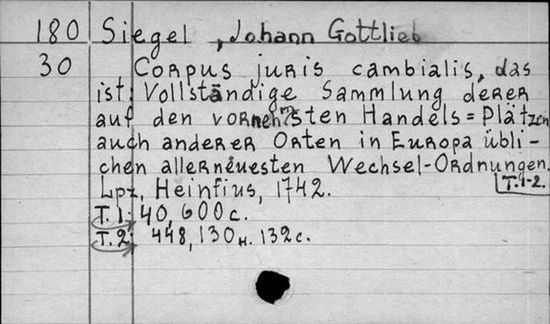 180 Siegel, Johann Gottlieb
30 Corpus juris cambialis, das
ist: Vollständige Sammlung derer
auf den vorneh?sten Handels=Plätzen
auch anderer Orten in Europa übli-
chen allerneuesten Wechsel-Ordnungen.
Lpz, Heinfius, 1742. T.1-2.
T.1: 40, 600 c.
T.2: 448, 130 н. 132 c.